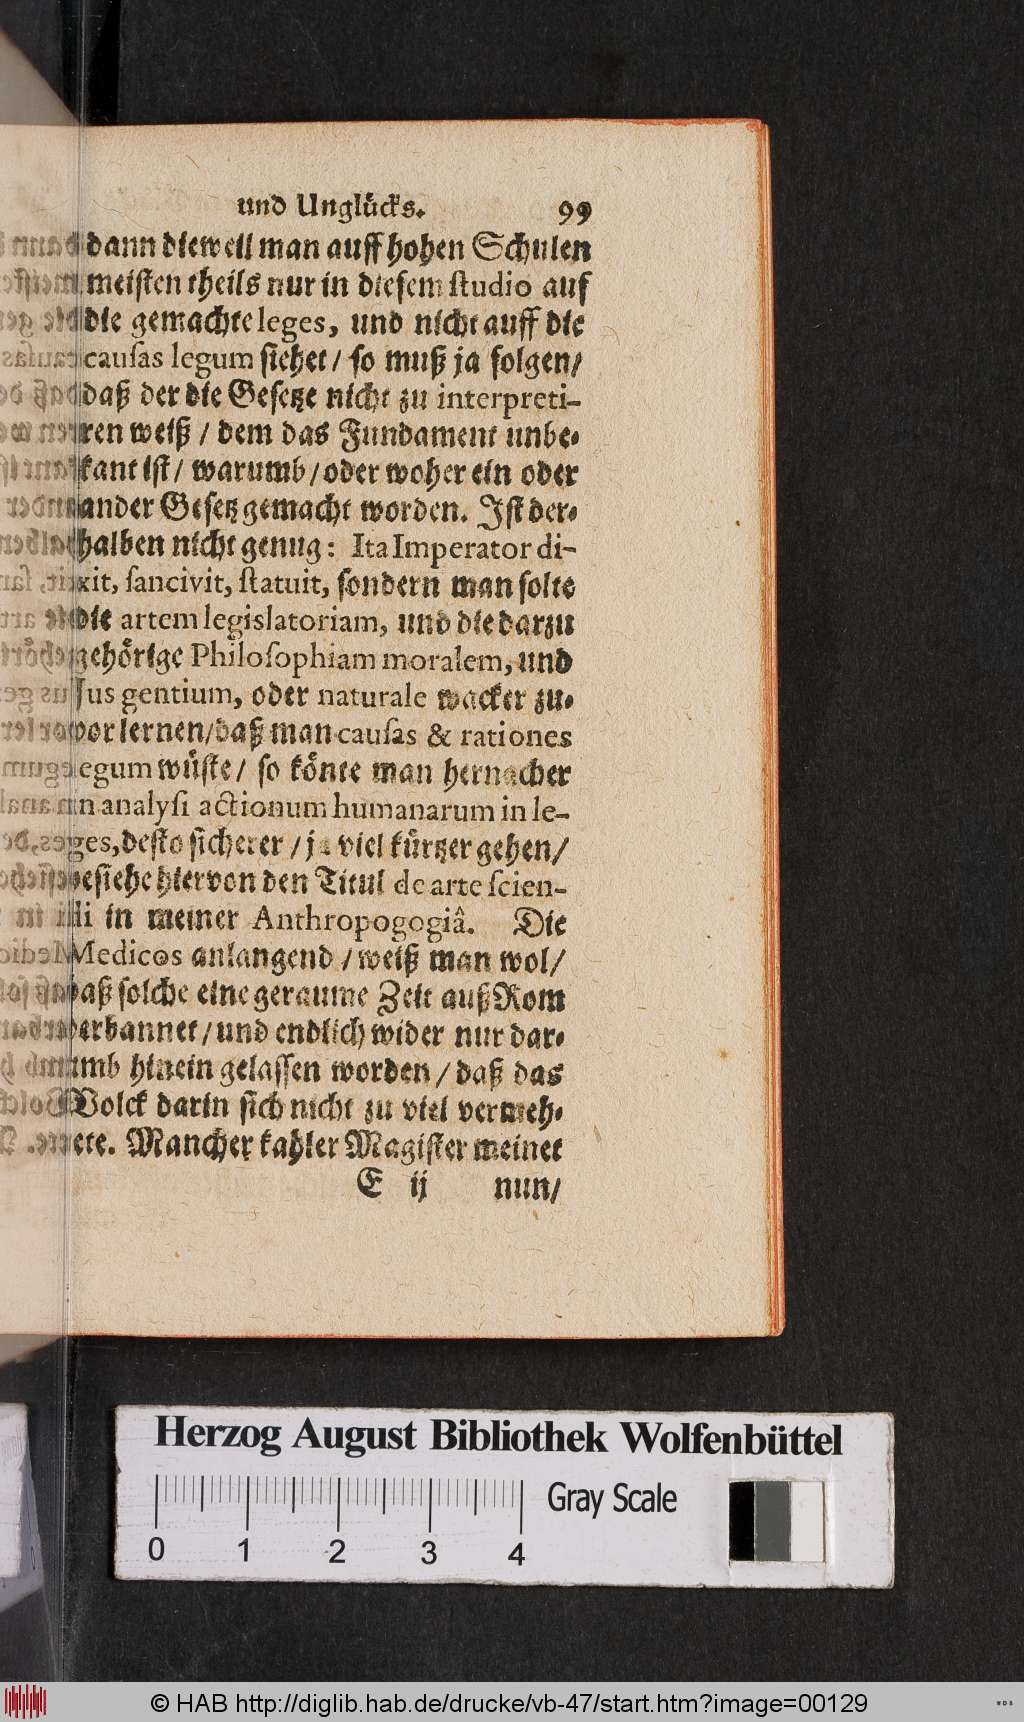 und Unglücks. 99
dann dieweil man auff hohen Schulen
meisten theils nur in diesem studio auf
die gemachte leges, und nicht auff die
causas legum siehet / so muß ja folgen /
daß der die Gesetze nicht zu interpreti-
ren weiß / dem das Fundament unbe-
kant ist / warumb / oder woher ein oder
ander Gesetz gemacht worden. Ist der-
halben nicht genug: Ita Imperator di-
xit, sancivit, statuit, sondern man solte
die artem legislatoriam, und die darzu
gehörige Philosophiam moralem, und
Jus gentium, oder naturale wacker zu-
vor lernen / daß man causas & rationes
legum wüste / so könte man hernacher
in analysi actionum humanarum in le-
ges, desto sicherer / ja viel kürtzer gehen /
besiehe hiervon den Titul de arte scien-
di in meiner Anthropogogiâ. Die
Medicos anlangend / weiß man wol /
daß solche eine geraume Zeit auß Rom
verbannet / und endlich wider nur dar-
umb hinein gelassen worden / daß das
Volck darin sich nicht zu viel vermeh-
rete. Mancher kahler Magister meinet
E ij nun /
Herzog August Bibliothek Wolfenbüttel
Gray Scale
0 1 2 3 4
© HAB http://diglib.hab.de/drucke/vb-47/start.htm?image=00129